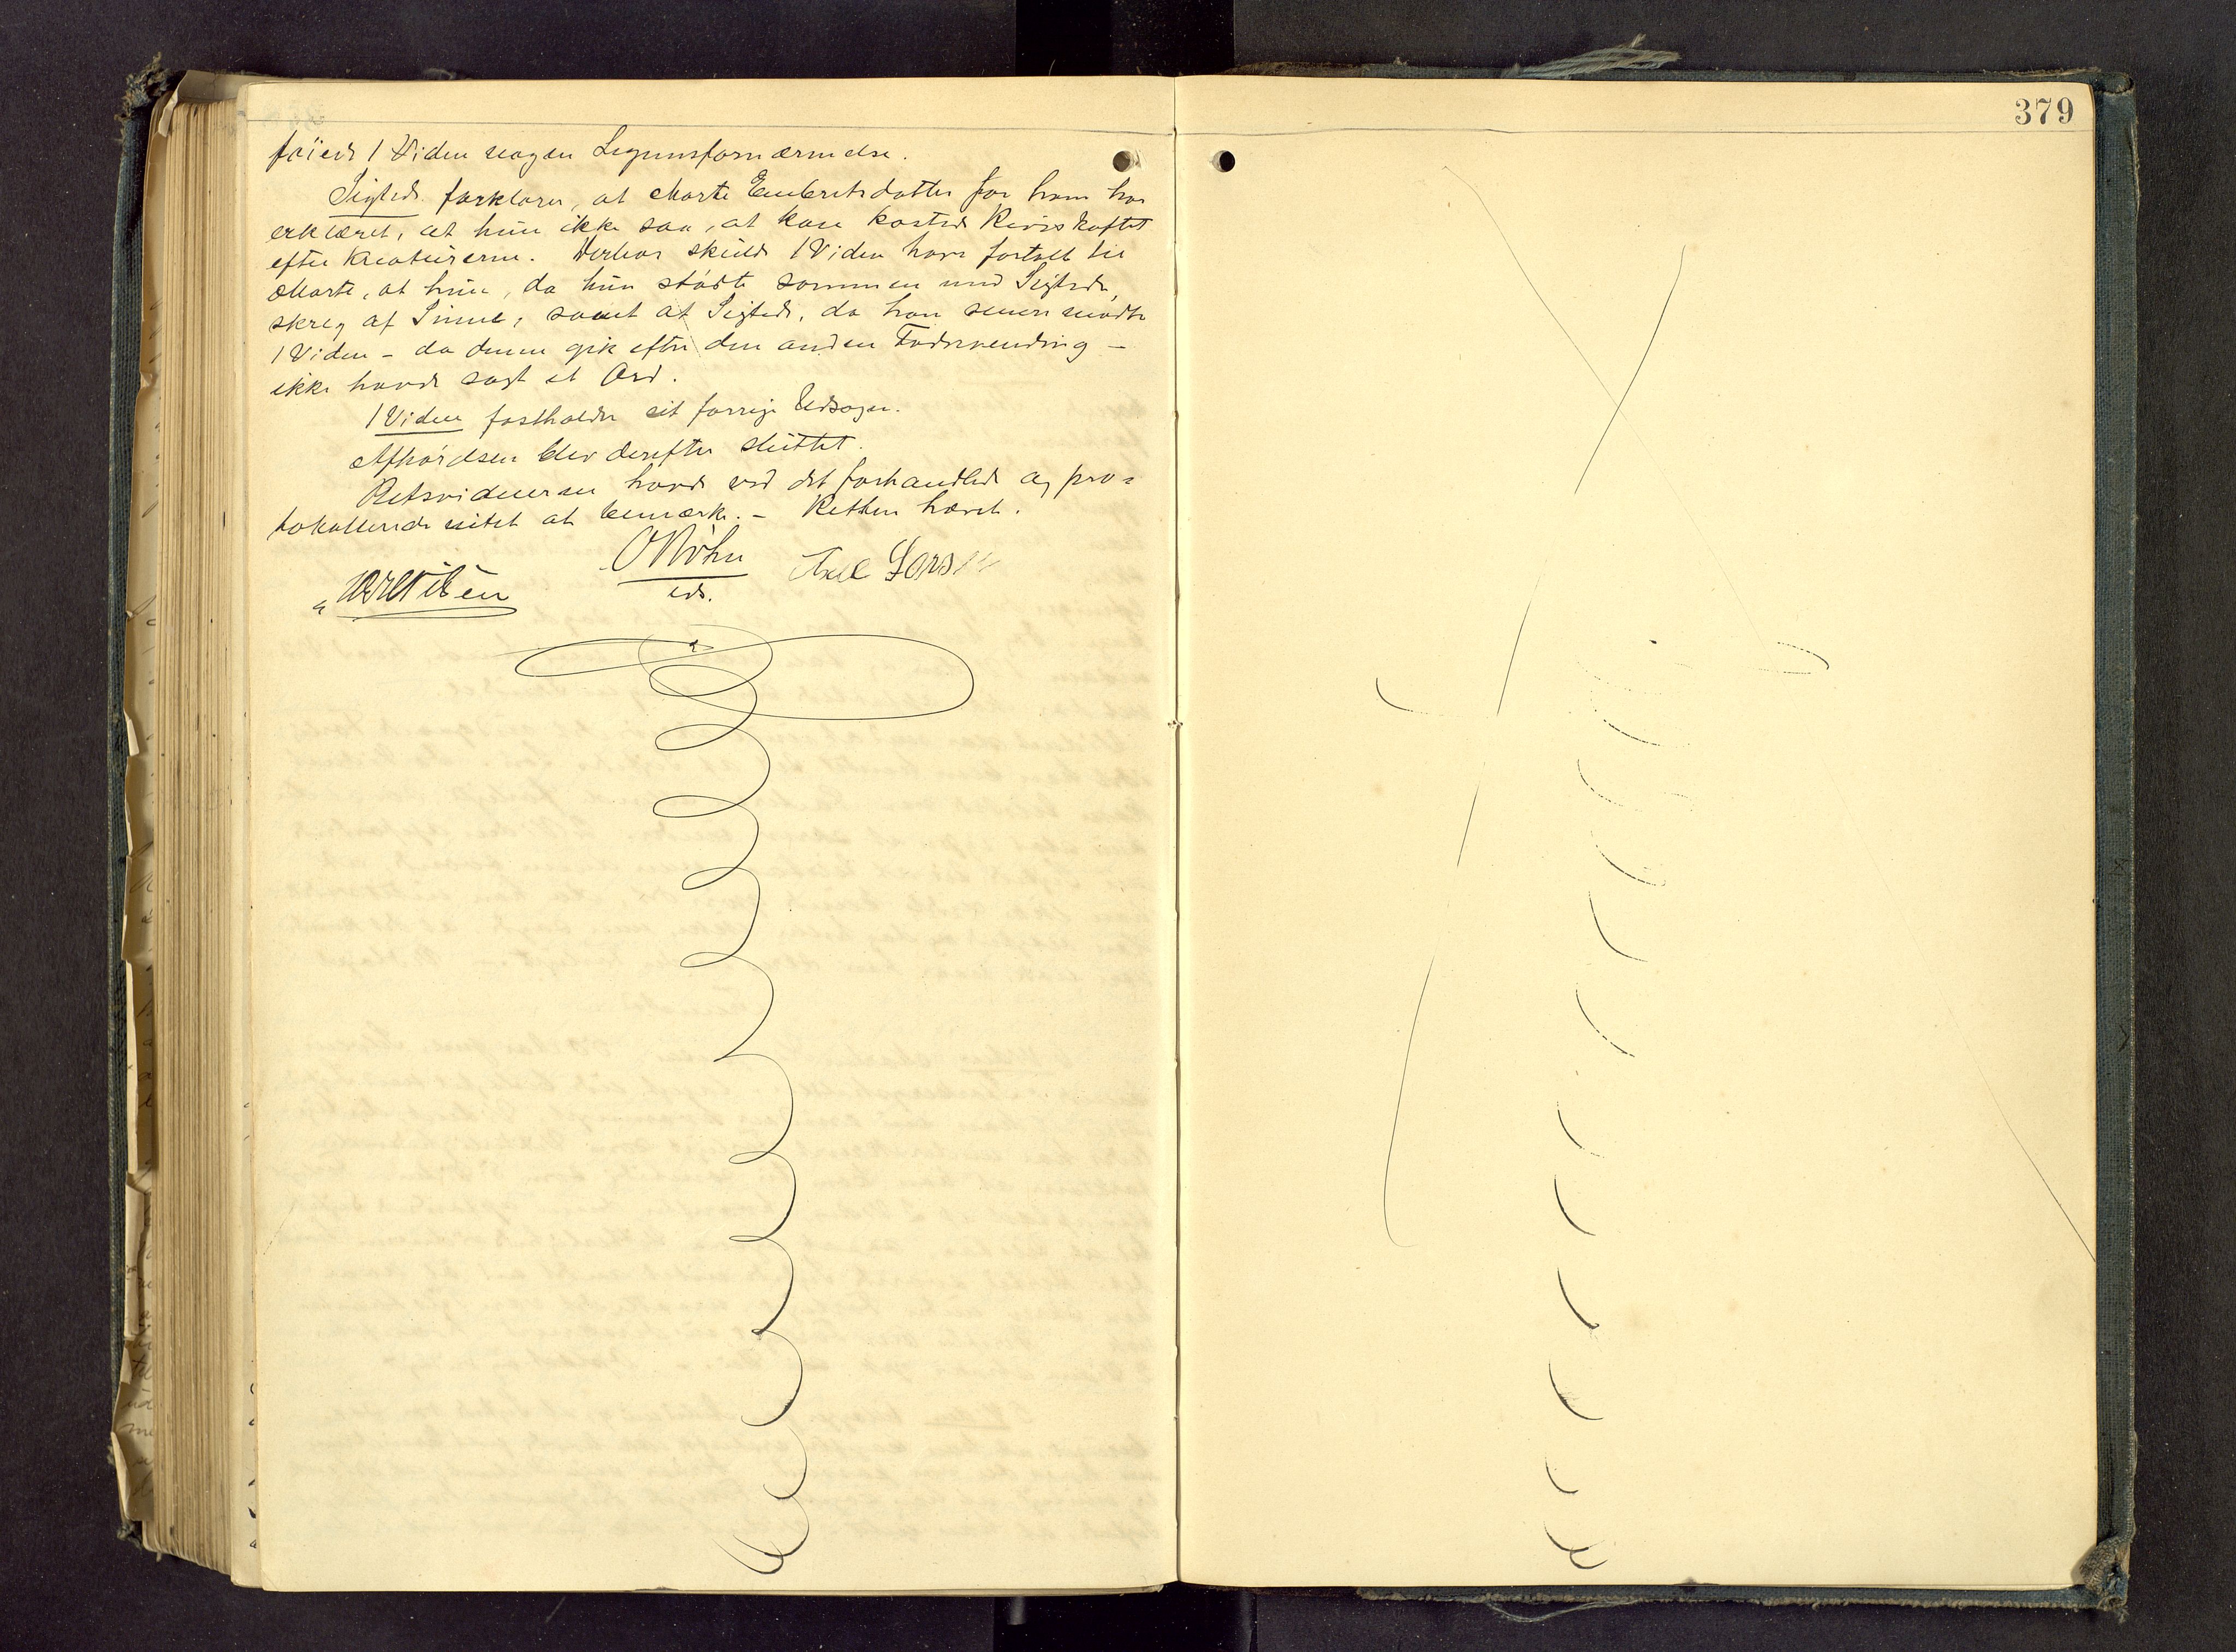 føiet 1 Vidne nogen Legemsfornærmelse.
Sigtede forklarer, at Marte Embretsdatter for ham har
erklæret, at hun ikke saa, at han kastede Riveskaftet
efter Kreaturerne. Derhos skulde 1 Vidne have fortalt til
Marte, at hun, da hun stødte sammen med Sigtede,
skreg af Sinne, samt at Sigtede, da han senere mødte
1 Vidne – da denne gik efter den anden
ikke havde sagt et Ord.
1 Vidne fastholder sit forrige Udsagn.
Afhørelsen blev derefter sluttet.
Retsvidnerne havde ved det forhandlede og pro-
tokollerede intet at bemærke. – Retten hævet.
Axel
cds.
379